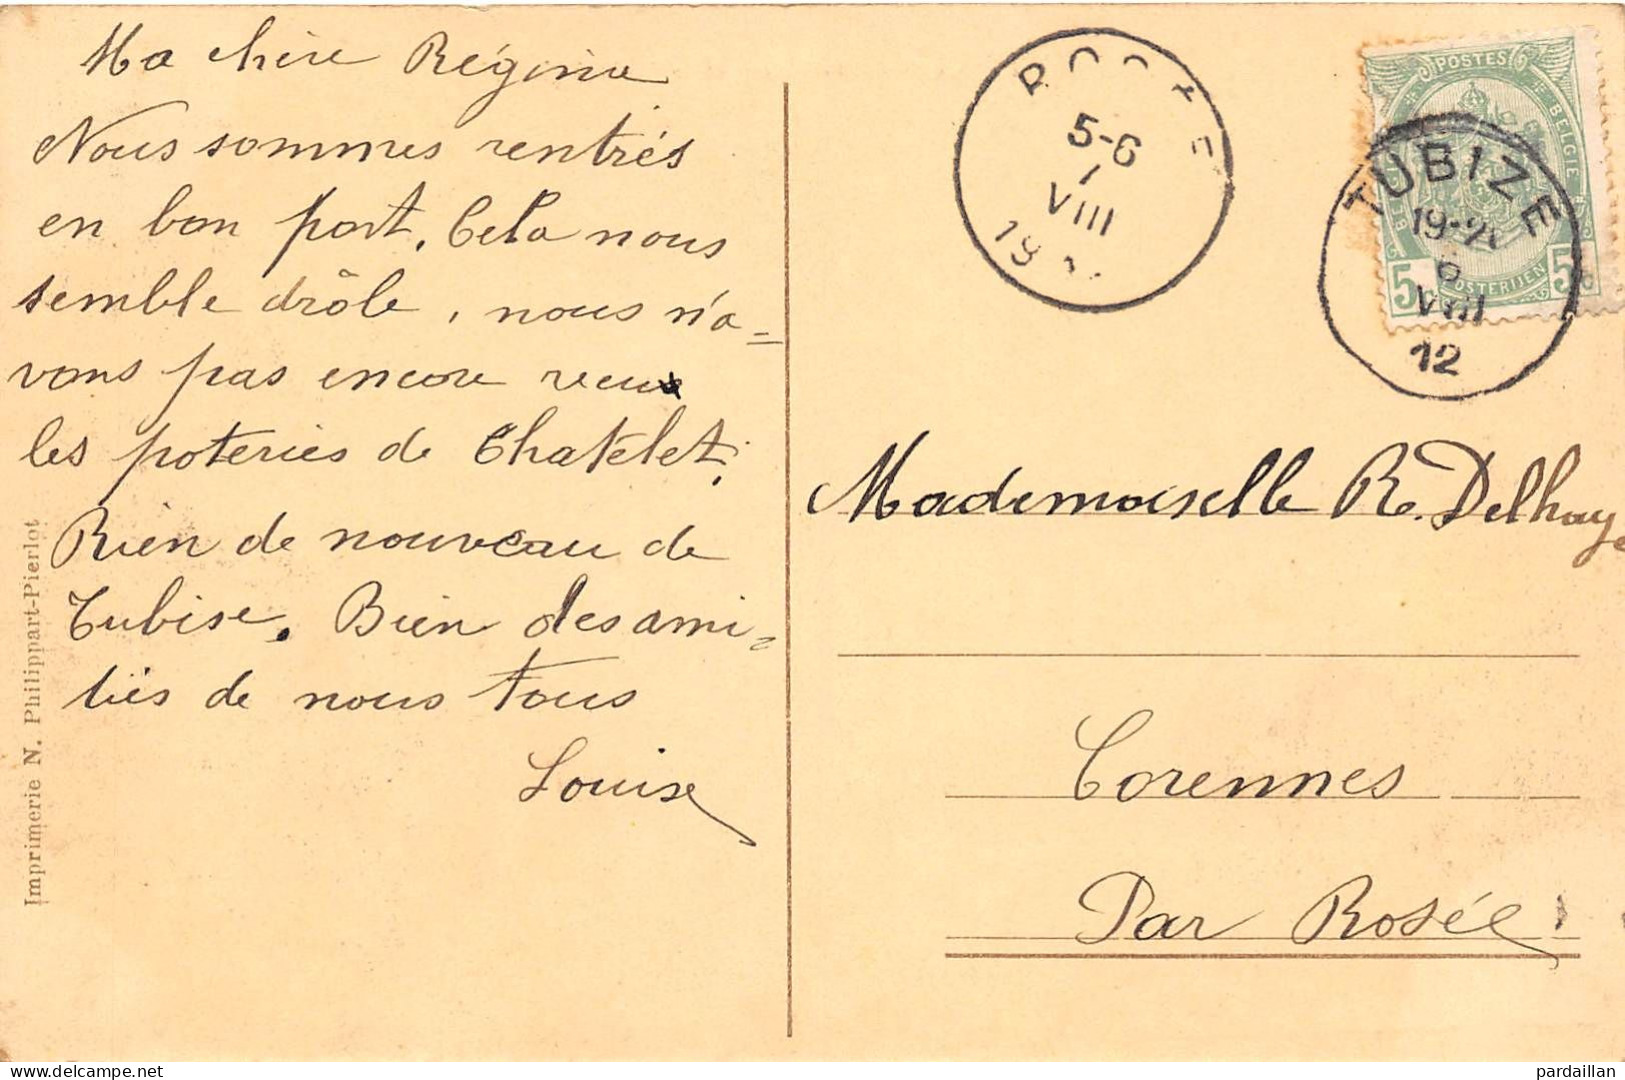 Ma chère Régina
Nous sommes rentrés
en bon port. Cela nous
semble drôle, nous n'a=
vons pas encore revu
les poteries de Chatelet.
Rien de nouveau de
Tubise. Bien des ami-
tiés de nous tous
Louise
Imprimerie N. Philippart-Pierlot
5-6
VIII
POSTES
BELGIQUE
POSTERIJEN
5c
5c
TUBIZE
6
VIII
12
Mademoiselle R. Delhaye
Corennes
Par Rosée
delcampe.net
pardaillan